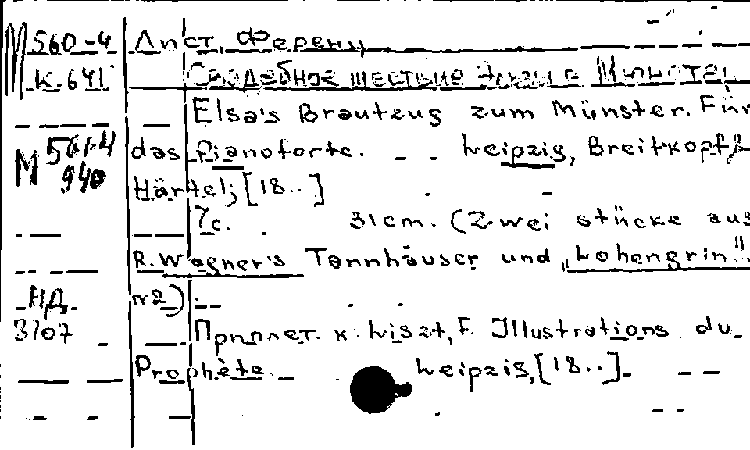 М 560-4 Лист, Ференц
К-641 Свадебное шествие Эльзы в Мюнстер
Elsa's Brautzug zum Münster. Für
М 561-4 das Pianoforte. Leipzig, Breitkopf &
940
Härtel; [18..]
7с. 31cm. (Zwei stücke aus
R. Wagner's Tannhäuser und „Lohengrin".
НД. №2)
3107 Приплет. к. Liszt, F. Illustrations du
Prophète. Leipzig, [18..].